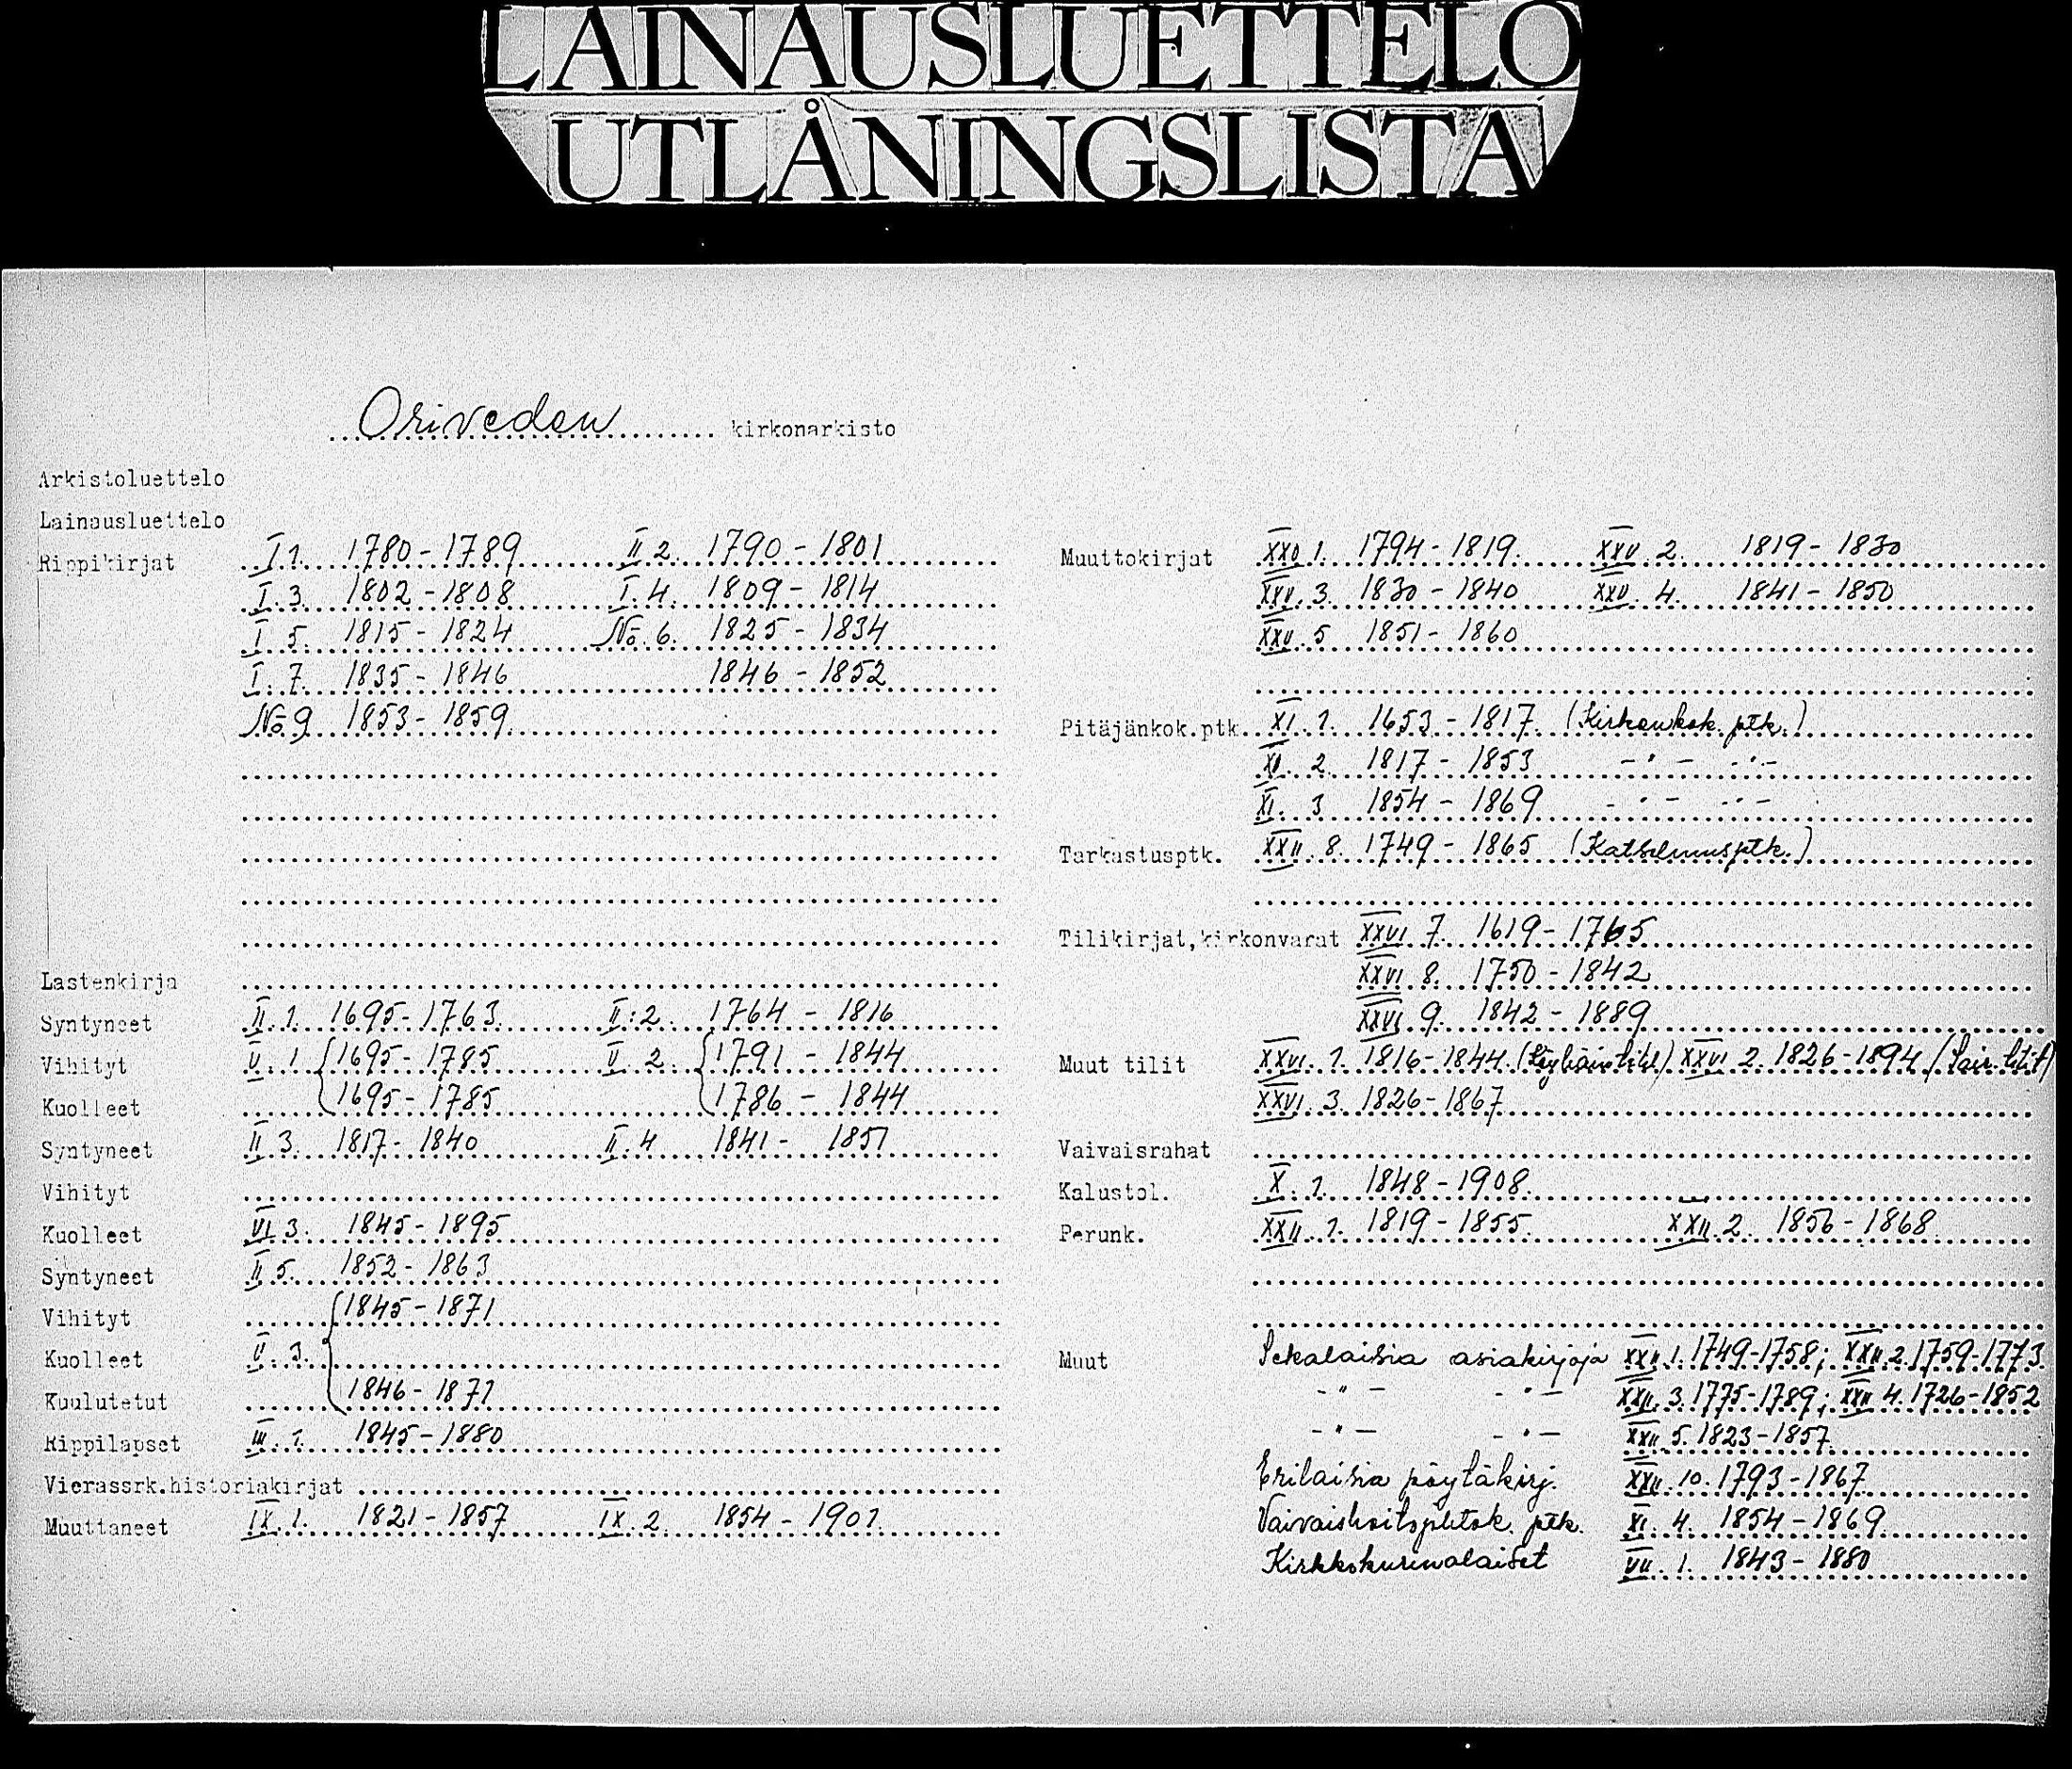 LAINAUSLUETTELO
UTLÅNINGSLISTA
Oriveden kirkonarkisto
Arkistoluettelo
Lainausluettelo
Rippikirjat I 1. 1780-1789 II 2. 1790-1801
I. 3. 1802-1808 I. 4. 1809-1814
I. 5. 1815-1824 No. 6. 1825-1834
I. 7. 1835-1846 1846-1852
No 9 1853-1859
Lastenkirja
Syntyneet II. 1. 1695-1763 II:2. 1764-1816
Vihityt V. 1 1695-1785 V. 2. 1791-1844
Kuolleet 1695-1785 1786-1844
Syntyneet II 3. 1817-1840 II. 4 1841-1851
Vihityt
Kuolleet VI 3. 1845-1895
Syntyneet II 5. 1852-1863
Vihityt 1845-1871
Kuolleet V. 3.
Kuulutetut 1846-1871
Rippilapset III. 1. 1845-1880
Vierassrk.historiakirjat
Muuttaneet IX. 1. 1821-1857 IX. 2. 1854-1901
Muuttokirjat XXV 1. 1794-1819. XXV. 2. 1819-1830
XXV. 3. 1830-1840 XXV. 4. 1841-1850
XXV. 5 1851-1860
Pitäjänkok.ptk. XI. 1. 1653-1817 (Kirkonkok. ptk.)
XI. 2. 1817-1853 -"- -"-
XI. 3 1854-1869 -"- -"-
Tarkastusptk. XXII. 8. 1749-1865 (Katselmusptk.)
Tilikirjat,kirkonvarat XXVI. 7. 1619-1765
XXVI. 8. 1750-1842
XXVI. 9. 1842-1889
Muut tilit XXVI. 1. 1816-1844. XXVI 2. 1826-1894
XXVI. 3. 1826-1867
Vaivaisrahat
Kalustol. X. 1. 1848-1908.
Perunk. XXII. 1. 1819-1855. XXII. 2. 1856-1868
Muut Sekalaisia asiakirjoja XXII. 1. 1749-1758; XXII. 2. 1759-1773.
-"- -"- XXII. 3. 1775-1789; XXII 4. 1726-1852
-"- -"- XXII. 5. 1823-1857
Erilaisia pöytäkirj. XXII. 10. 1793-1867
ptk. XI. 4. 1854-1869
Kirkkokurinalaiset VII. 1. 1843-1880